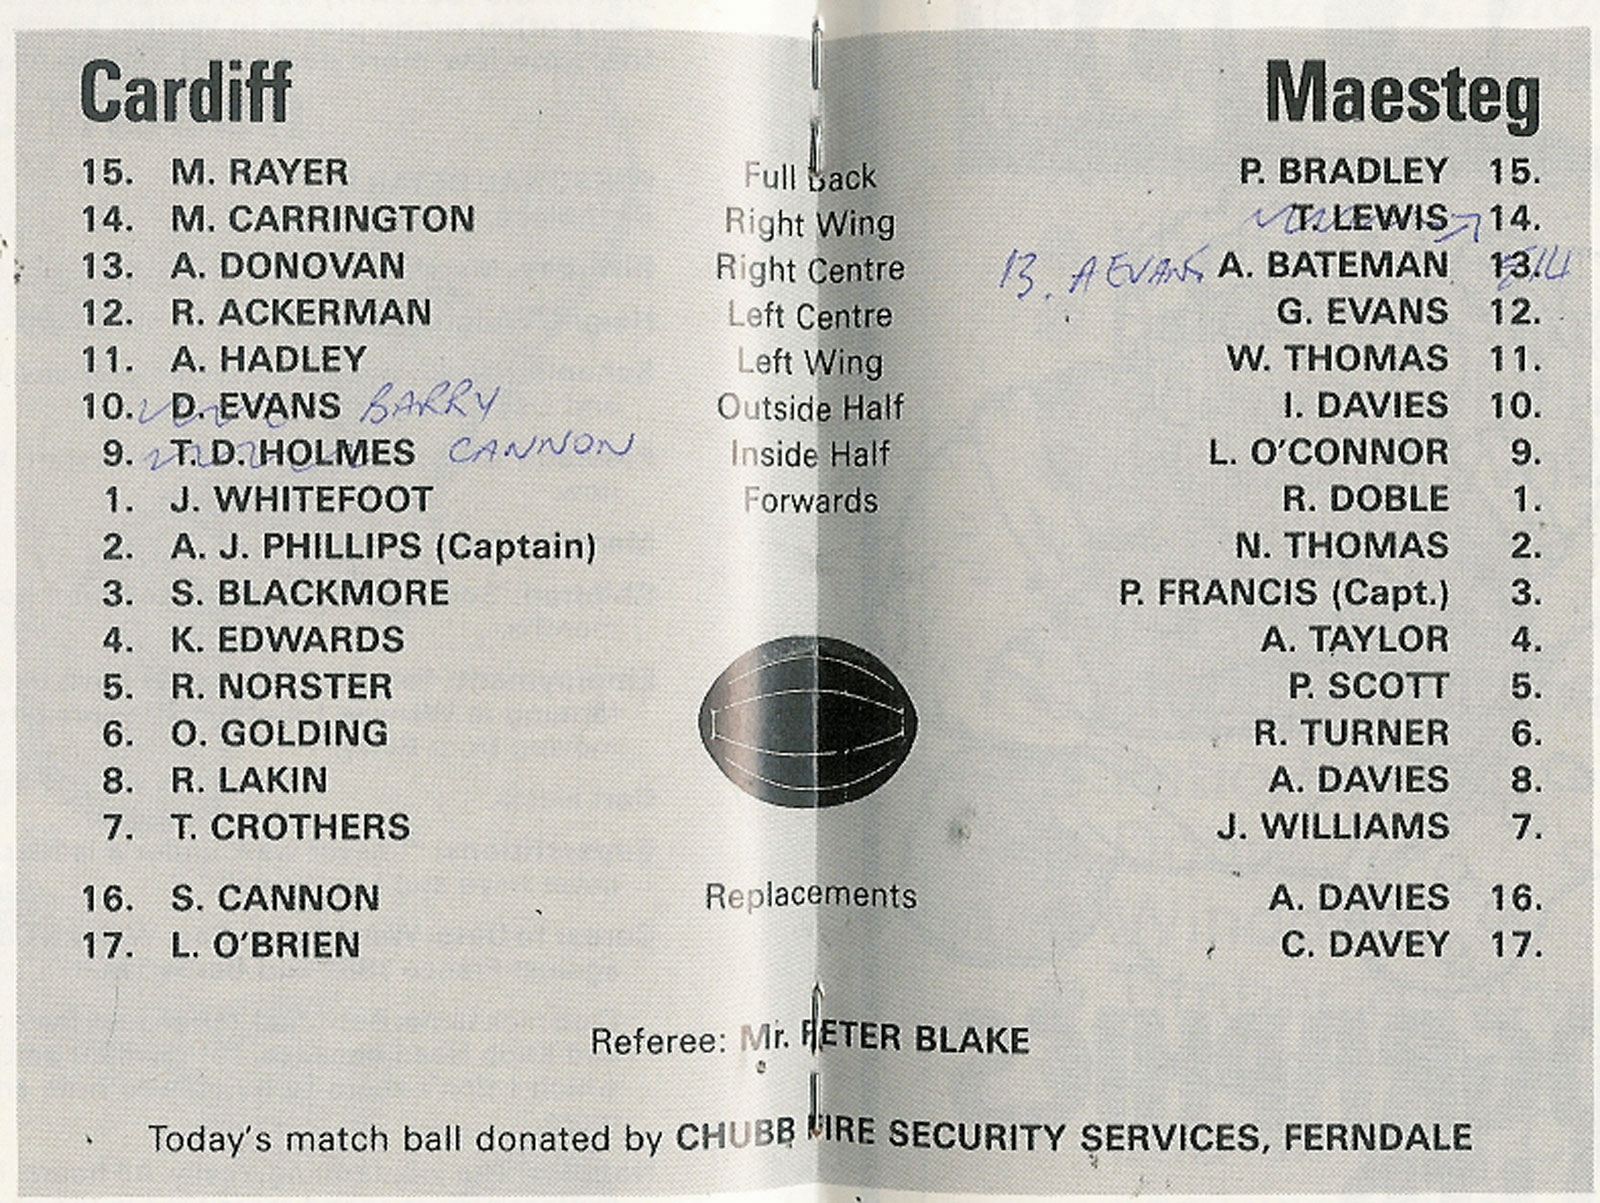 Cardiff Maesteg
15. M. RAYER Full Back P. BRADLEY 15.
14. M. CARRINGTON Right Wing T. LEWIS 14.
13. A. DONOVAN Right Centre 13. A EVANS A. BATEMAN 13. 14
12. R. ACKERMAN Left Centre G. EVANS 12.
11. A. HADLEY Left Wing W. THOMAS 11.
10. D. EVANS BARRY Outside Half I. DAVIES 10.
9. T. D. HOLMES CANNON Inside Half L. O'CONNOR 9.
1. J. WHITEFOOT Forwards R. DOBLE 1.
2. A. J. PHILLIPS (Captain) N. THOMAS 2.
3. S. BLACKMORE P. FRANCIS (Capt.) 3.
4. K. EDWARDS A. TAYLOR 4.
5. R. NORSTER P. SCOTT 5.
6. O. GOLDING R. TURNER 6.
8. R. LAKIN A. DAVIES 8.
7. T. CROTHERS J. WILLIAMS 7.
16. S. CANNON Replacements A. DAVIES 16.
17. L. O'BRIEN C. DAVEY 17.
Referee: Mr. PETER BLAKE
Today's match ball donated by CHUBB FIRE SECURITY SERVICES, FERNDALE